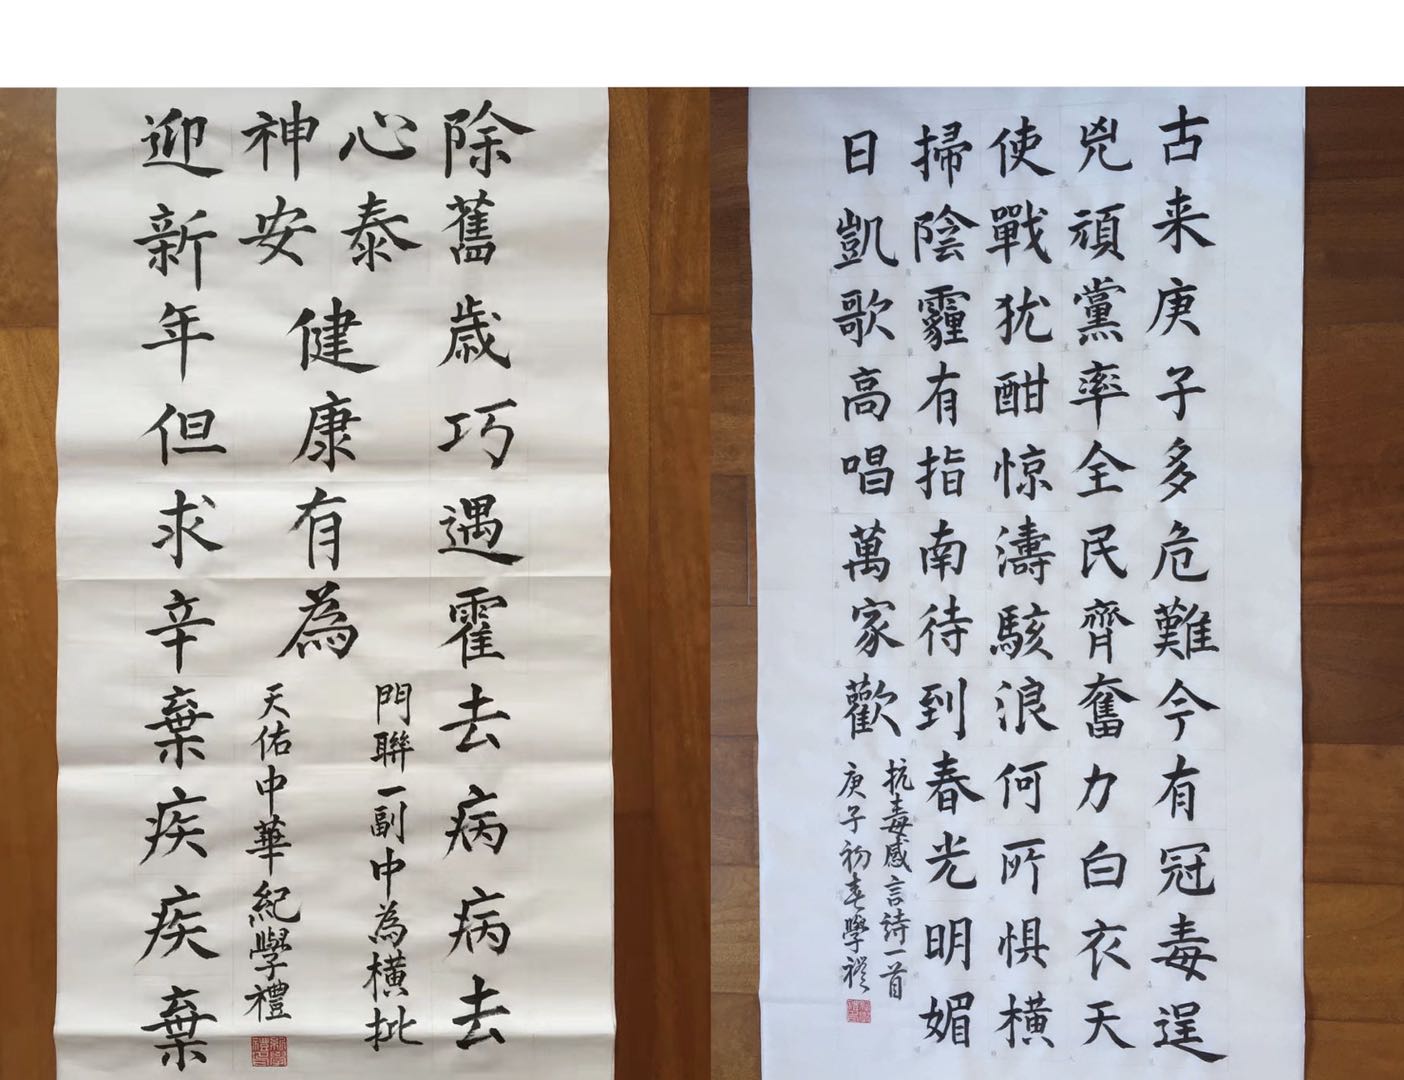 除舊歲巧遇霍去病病去
心泰
神安
健康有為
門聯一副中為橫批
天佑中華紀學禮
迎新年但求辛棄疾疾棄
古来庚子多危難今有冠毒逞
兇頑黨率全民齊奮力白衣天
使戰犹酣惊濤駭浪何所惧橫
掃陰霾有指南待到春光明媚
日凱歌高唱萬家歡
抗毒感言詩一首
庚子初春學禮